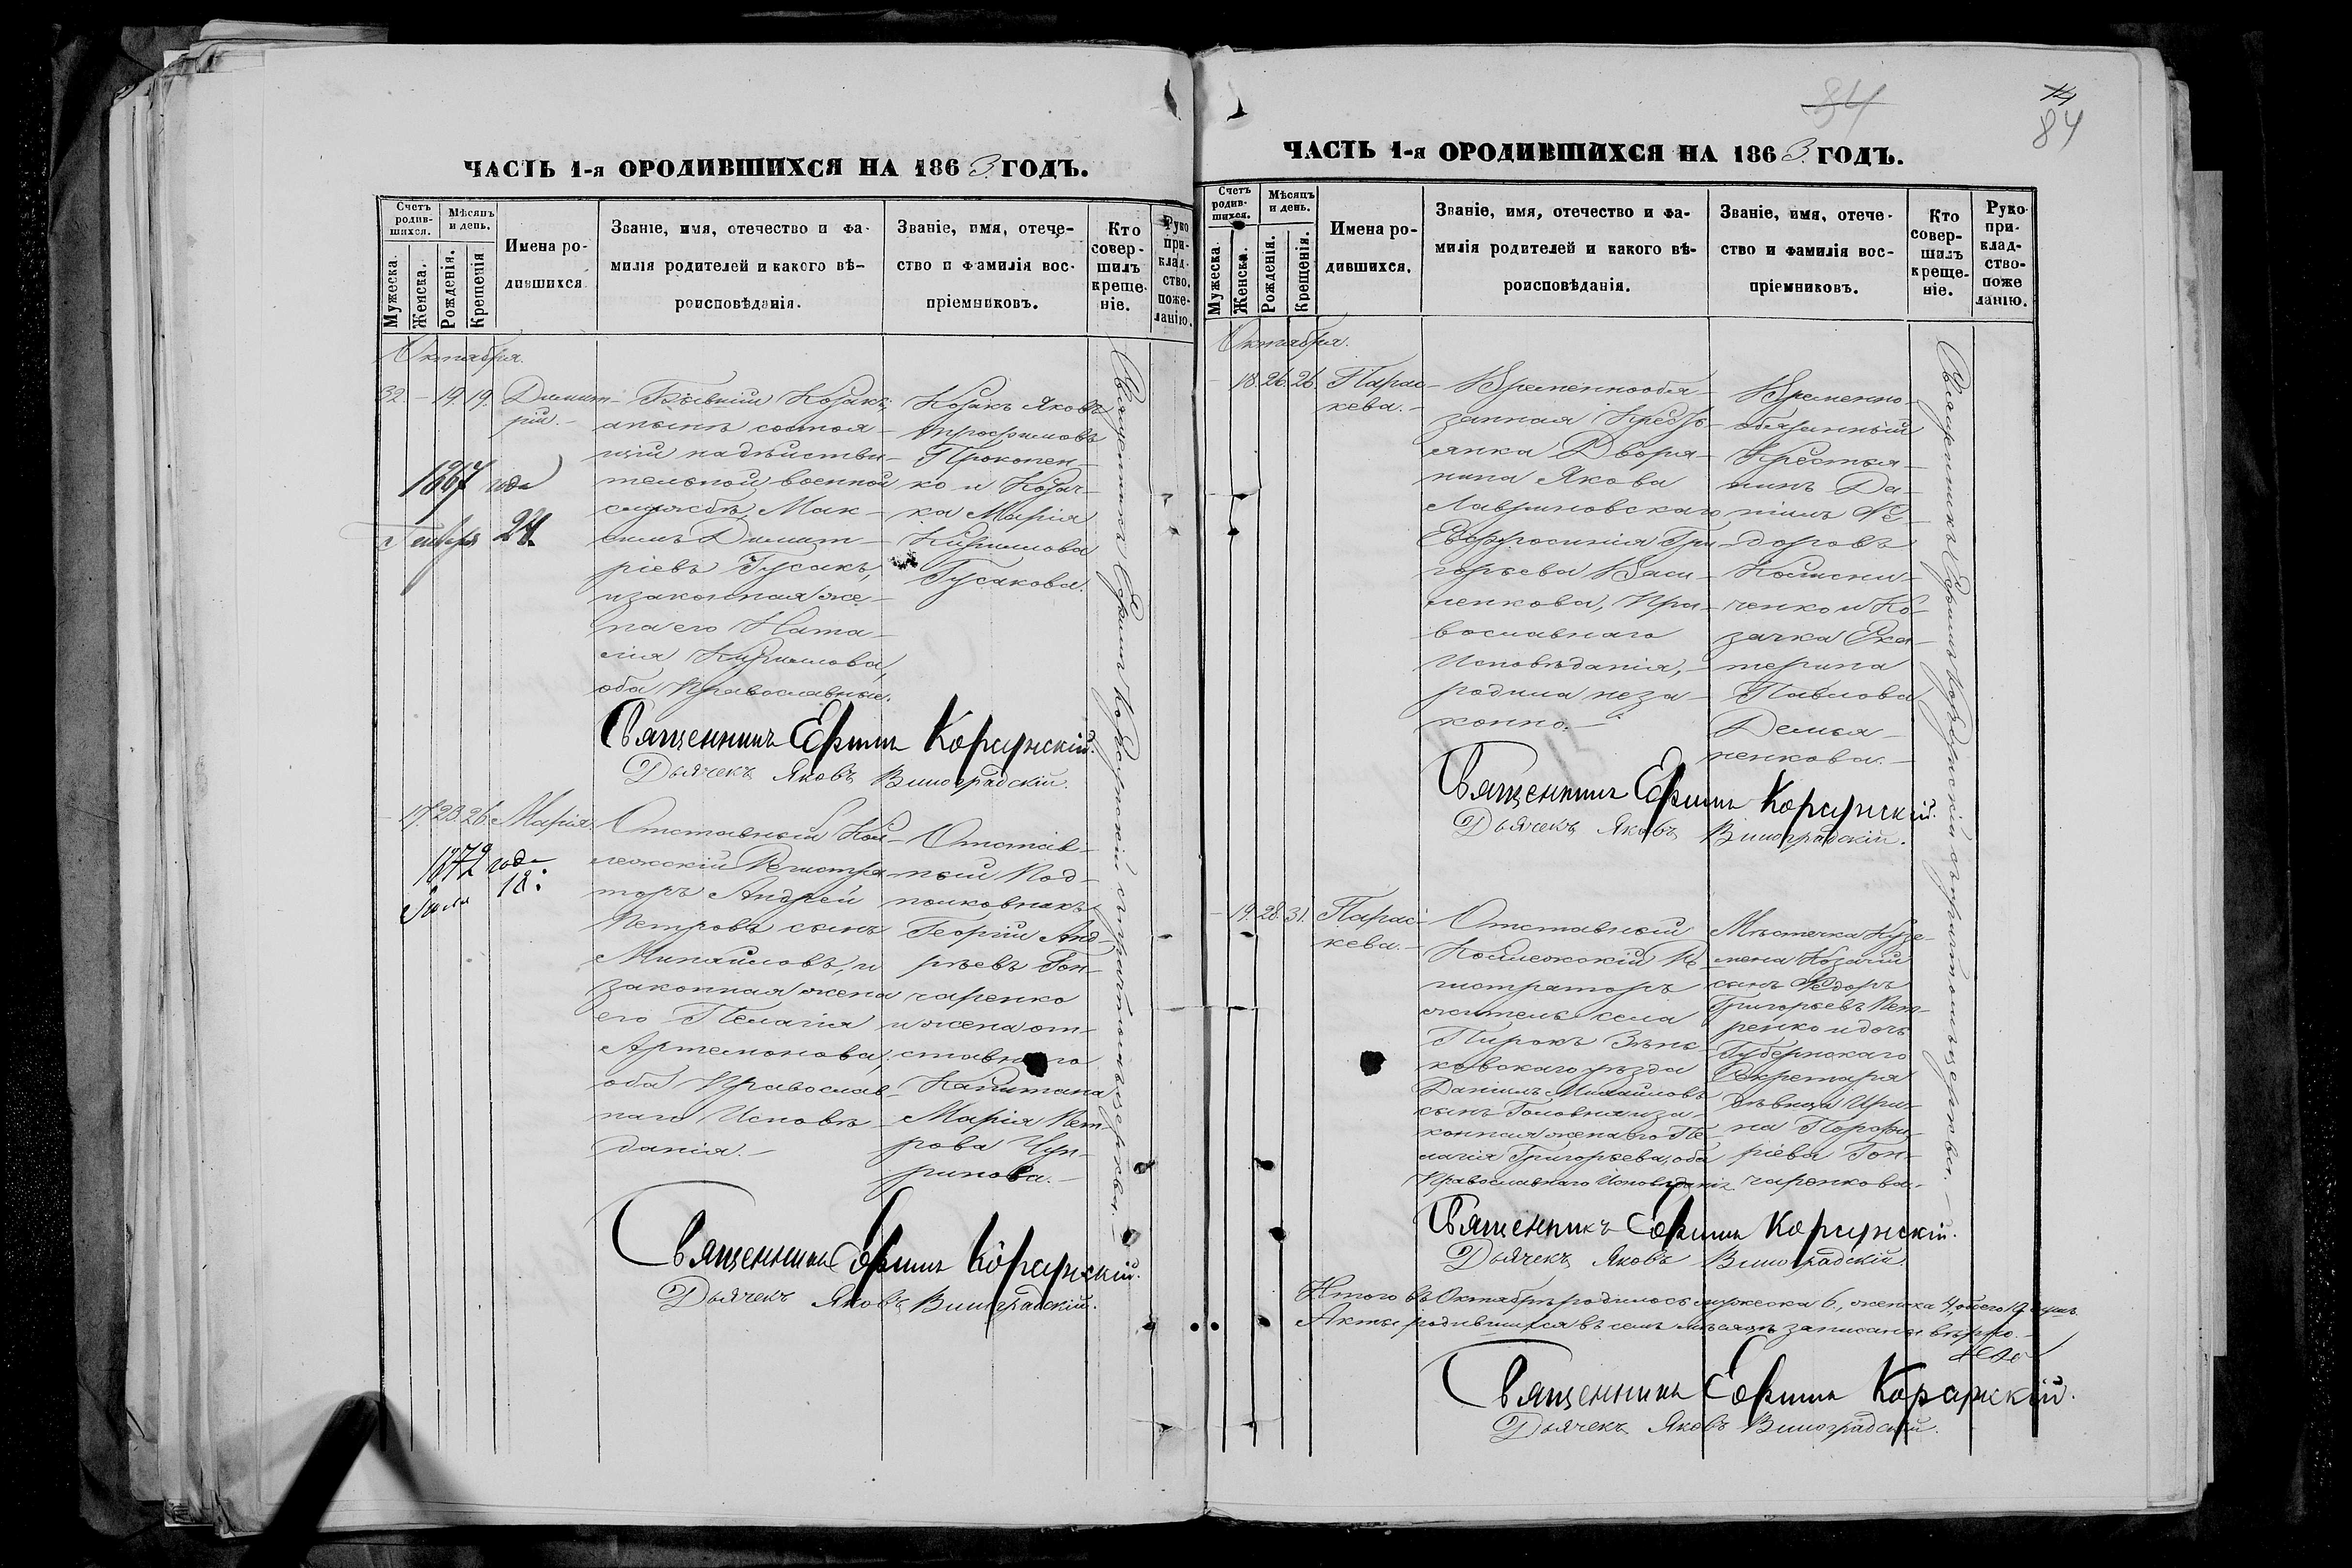 ЧАСТЬ 1-я ОРОДИВШИХСЯ НА 1863 ГОДЪ.
Счетъ родив-шихся.
Мѣсяцъ и день.
Мужеска.
Женска.
Рожденія.
Крещенія
Имена ро-
дившихся
Званіе, имя, отечество и фа-
милія родителей и какого вѣ-
роисповѣданія.
Званіе, имя, отече-
ство и фамилія вос-
пріемниковъ.
Кто
совер-
шилъ
креще-
ніе.
Руко
при-
клад-
ство.
поже-
ланію.
Октября.
32. - 19. 19. Димит-
рій. -
1867 года
Генваря 24.
Бывшій Козакъ,
а нынѣ состоя-
щій на дѣйстви-
тельной военной
службѣ, Мак-
симъ Димит-
ріевъ Гусакъ,
и законная же-
на его Ната-
лія Кириллова,
оба Православные.
Козакъ Яковъ
Трофимовъ
Прокопен-
ко и Козач-
ка Марія
Кириллова
Гусакова.
Священникъ Ефимъ Корсунскій.
Дьячекъ Яковъ Виноградскій.
- 17. 23. 26. Марія.
1872 года
Іюля 18.
Отставный Кол-
лежскій Регистра-
торъ Андрей
Петровъ сынъ
Михайловъ, и
законная жена
его Пелагія
Артемонова,
оба Православ-
наго Исповѣ-
данія. -
Отстав-
ный Под-
полковникъ
Георгій Анд-
реевъ Гон-
чаренко
и жена от-
ставного
Капитана
Марія Пет-
рова Чуп-
ринова. -
Священникъ Ефимъ Корсунскій.
Дьячекъ Яковъ Виноградскій.
Священникъ Ефимъ Корсунскій съ причтомъ церкви. -
84
84
ЧАСТЬ 1-я ОРОДИВШИХСЯ НА 1863 ГОДЪ.
Счетъ
родив-
шихся.
Мѣсяцъ
и день.
Мужеска
Женска.
Рожденія.
Крещенія.
Имена ро-
дившихся.
Званіе, имя, отечество и фа-
милія родителей и какого вѣ-
роисповѣданія.
Званіе, имя, отече-
ство и фамилія вос-
пріемниковъ.
Кто
совер-
шилъ
креще-
ніе.
Руко-
при-
клад-
ство-
поже
ланію.
Октября.
- 18. 26. 26. Парас-
кева. -
Временнообя-
занная Кресть-
янка Дворя-
нина Якова
Лавриновскаго
Евфросинія Гри-
горьева Васи-
ленкова, Пра-
вославнаго
Исповѣданія, -
родила неза-
конно. -
Временно-
обязанный
Крестья-
нинъ Да-
ніилъ Фе-
доровъ
ченко и Ко-
зачка Ека-
терина
Павлова
Демья-
ненкова. -
Священникъ Ефимъ Корсунскій.
Дьячекъ Яковъ Виноградскій.
- 19. 28. 31. Парас-
кева. -
Отставный
Коллежскій Ре-
гистраторъ
житель села
Пирокъ Зѣнь-
ковскаго уѣзда
Даніилъ Михайловъ
сынъ Головня и за-
конная жена его Пе-
лагія Григорьева, оба
Православнаго Исповѣданія.
Мѣстечка Кузе-
мена Козачій
сынъ Федоръ
Григорьевъ Пет-
ренко и дочь
Губернскаго
Секретаря
дѣвица Ири-
на Порфи-
ріева Гон-
чаренкова. -
Священникъ Ефимъ Корсунскій.
Дьячекъ Яковъ Виноградскій.
Священникъ Ефимъ Корсунскій съ причтомъ церкви. -
Итого въ Октябрѣ родилось мужеска 6., женска 4., обоего 10 душъ.
Акты родившихся въ семъ мѣсяцѣ записаны вѣрно. -
Священникъ Ефимъ Корсунскій.
Дьячекъ Яковъ Виноградскій.